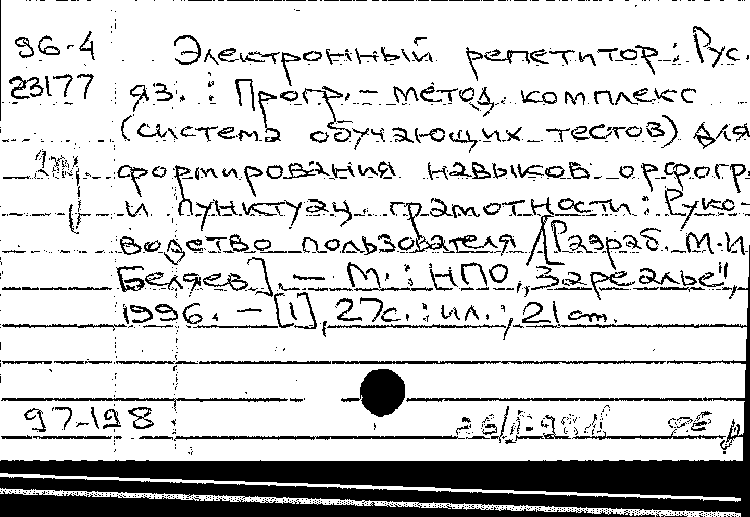 96-4 Электронный репетитор: Рус.
23177 яз. : Прогр.-метод. комплекс
(система обучающих тестов) для
формирования навыков орфогр.
и пунктуац. грамотности: Руко-
водство пользователя / [Разраб. М.И.
Беляев]. — М.: НПО „Зареалье",
1996. — [1], 27с. : ил. ; 21 см.
97-198